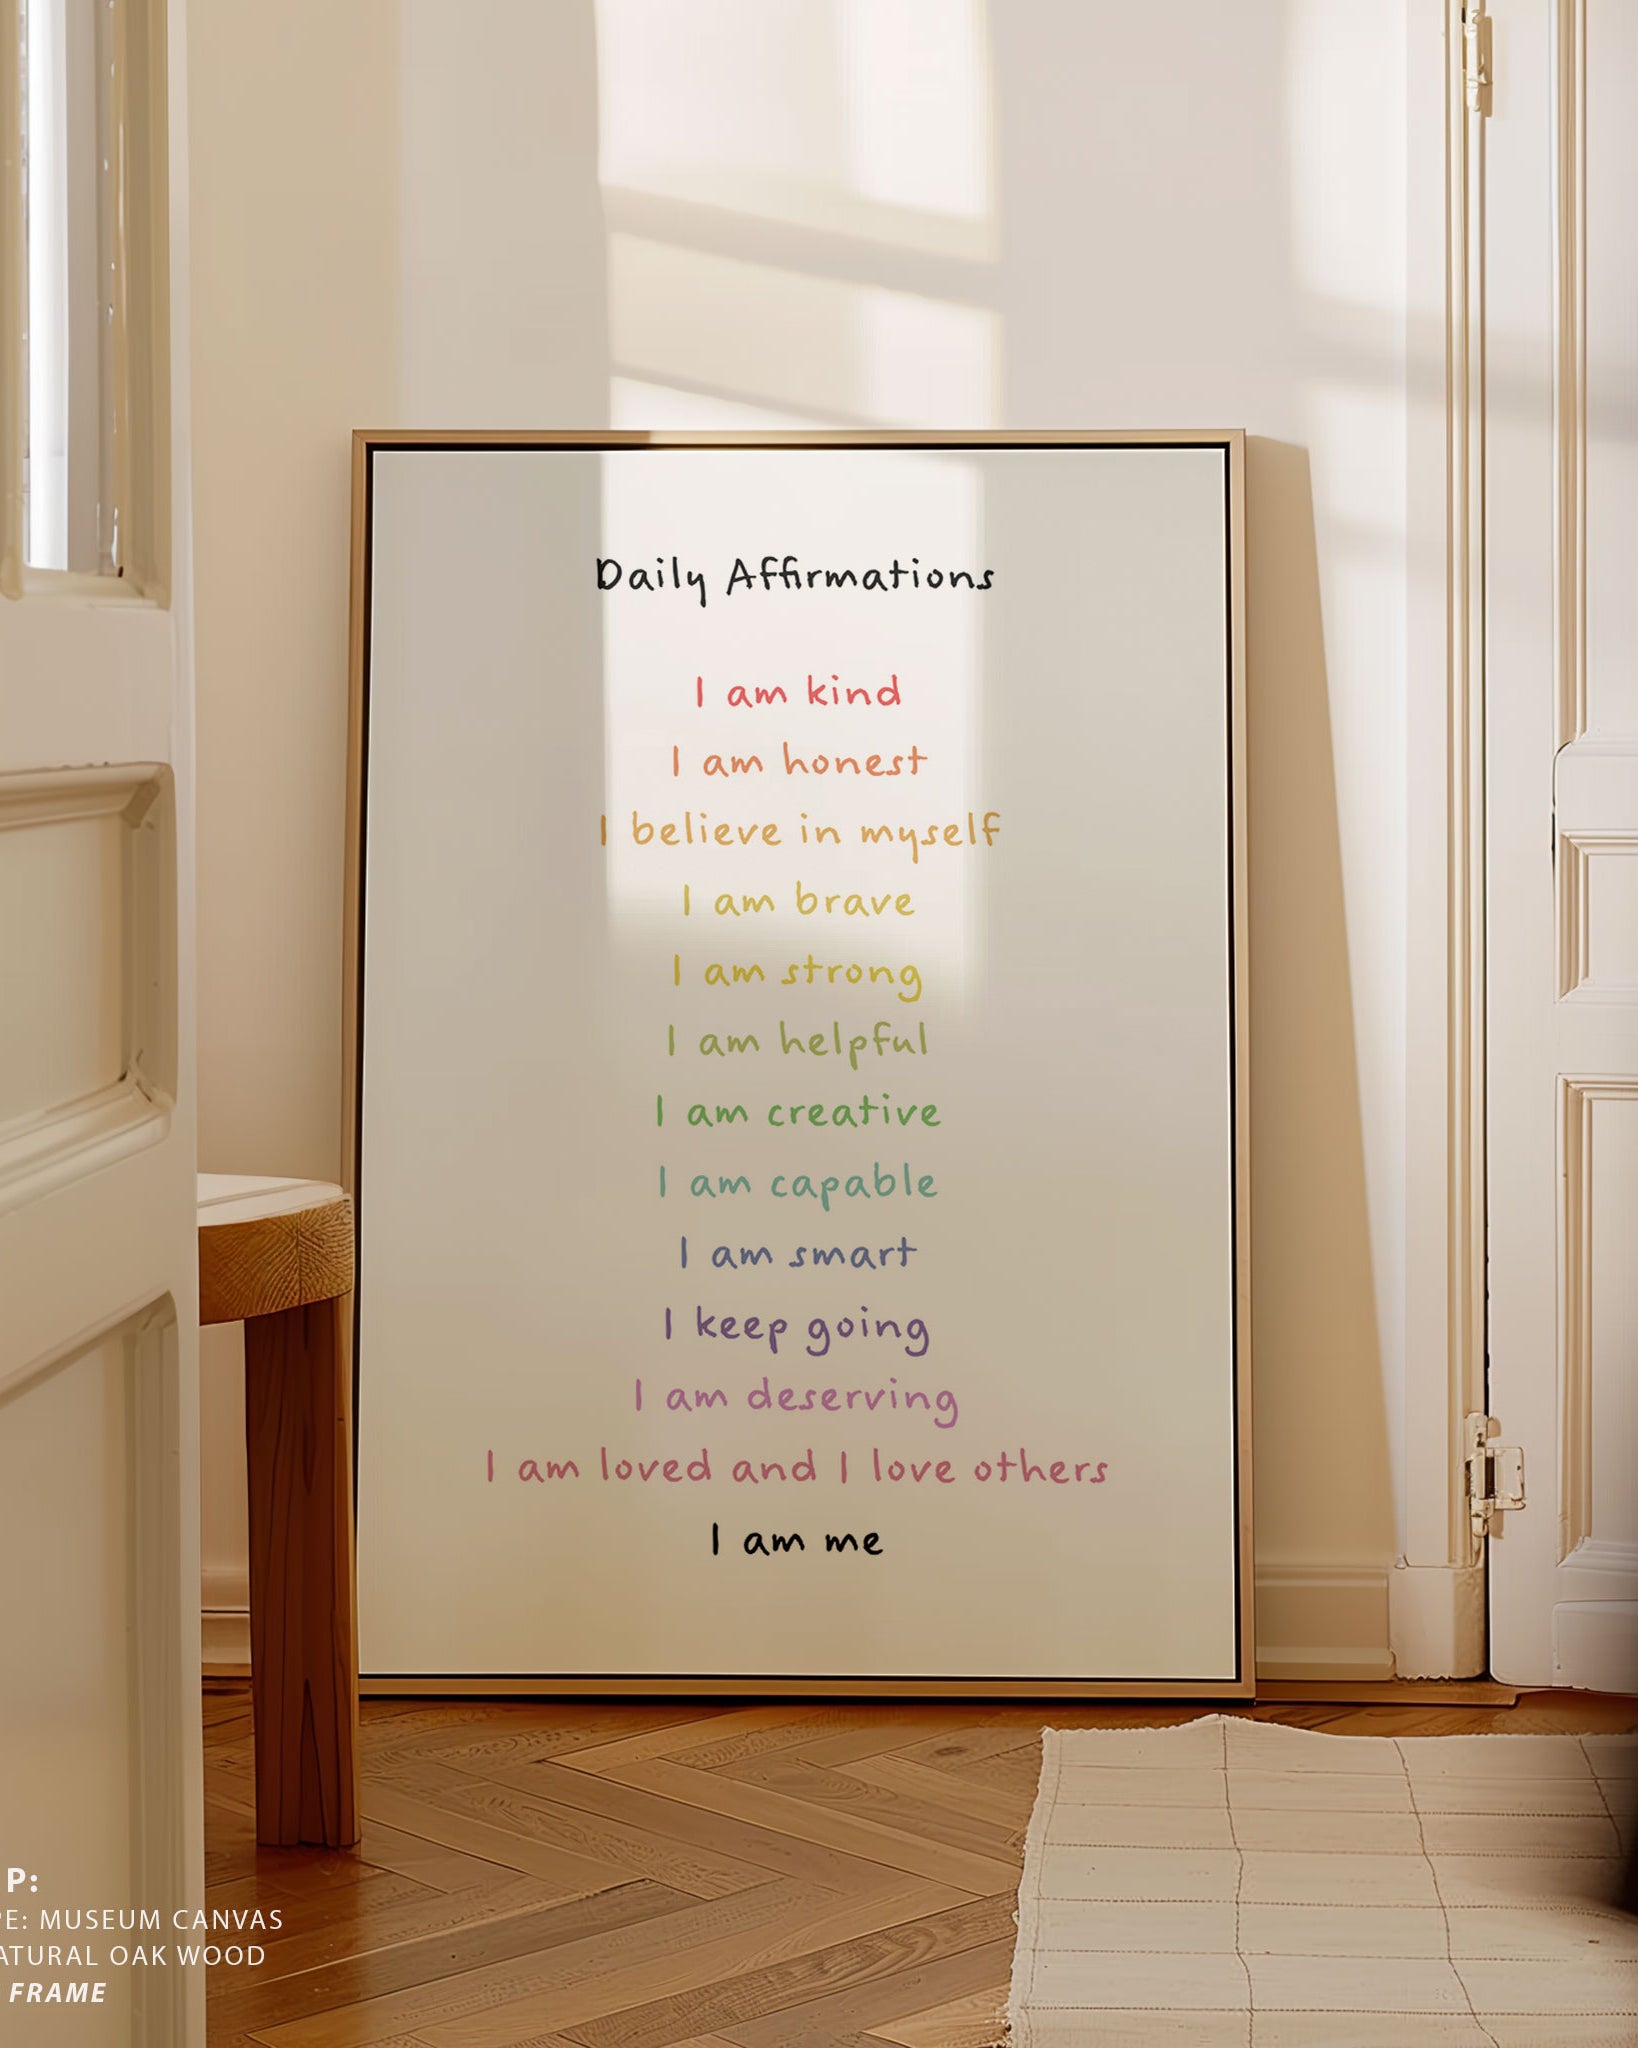 Daily Affirmations
I am kind
I am honest
I believe in myself
I am brave
I am strong
I am helpful
I am creative
I am capable
I am smart
I keep going
I am deserving
I am loved and I love others
I am me
P:
PE: MUSEUM CANVAS
ATURAL OAK WOOD
FRAME